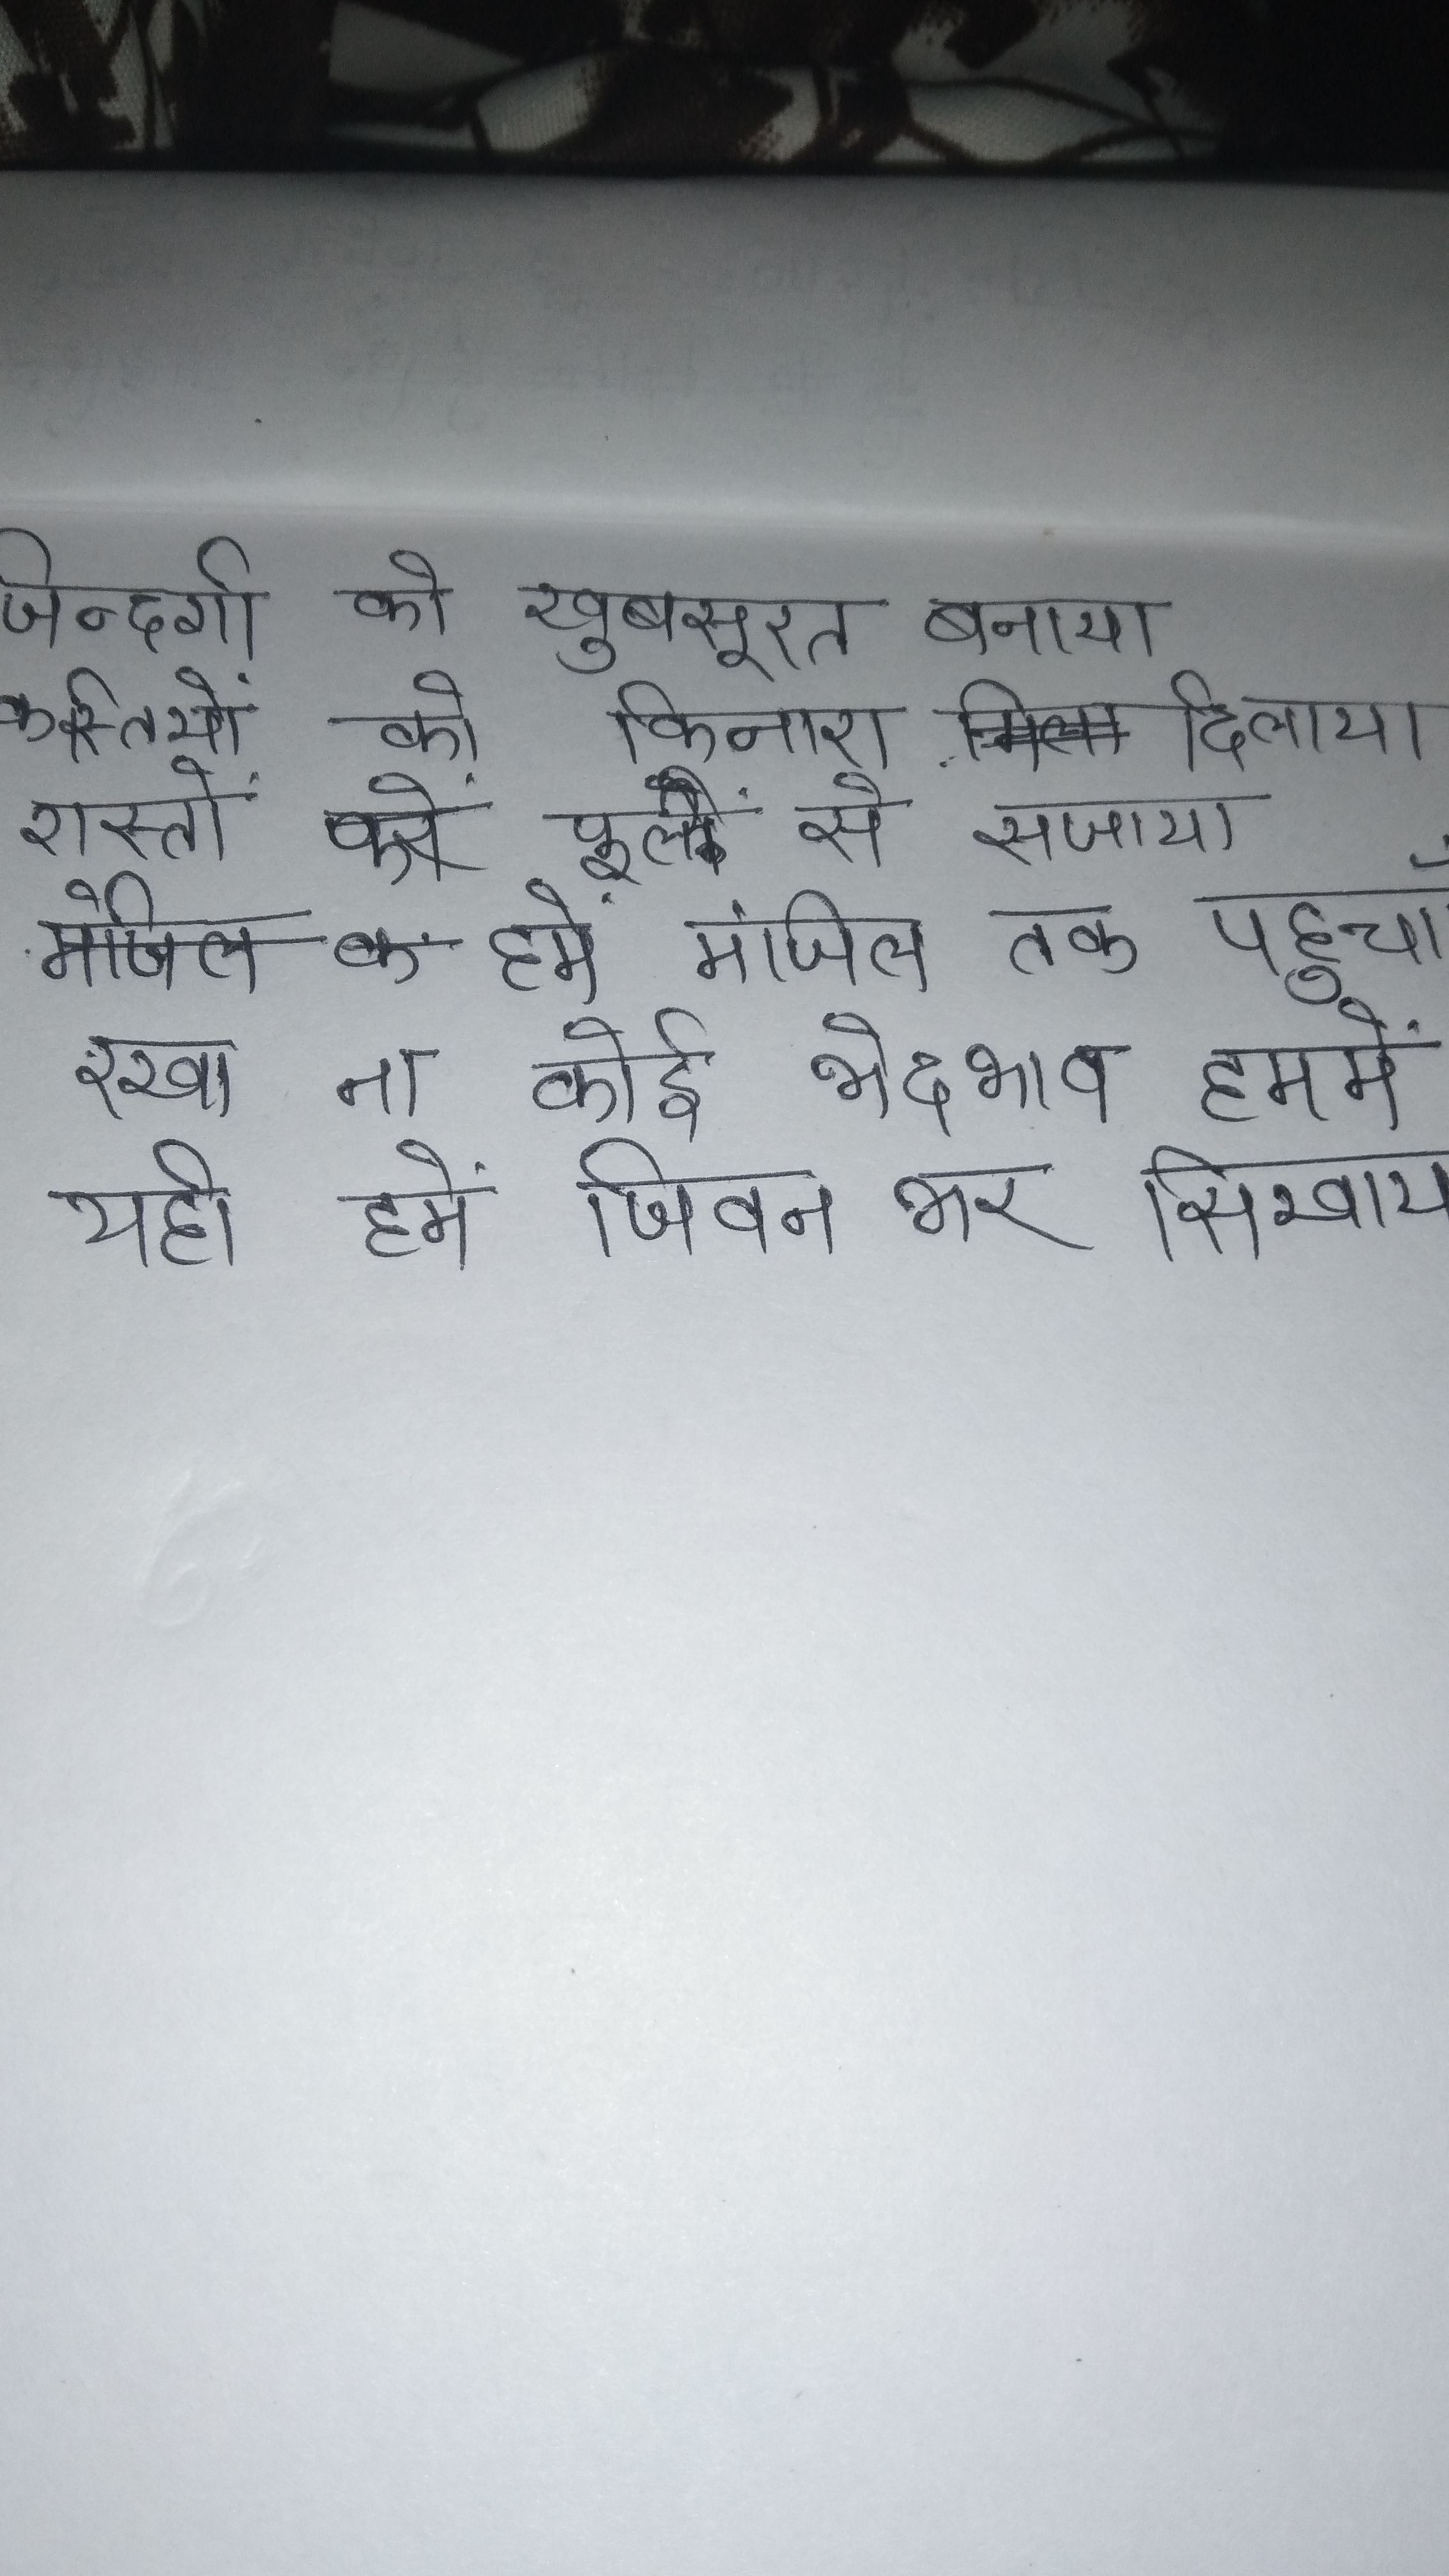 जिन्दगी को खुबसूरत बनाया
कस्तियों को किनारा दिलाया
रास्तों को फूलों से सजाया
हमें मंजिल तक पहुचा
रखा ना कोई भेदभाव हममें
यही हमें जिवन भर सिखाय